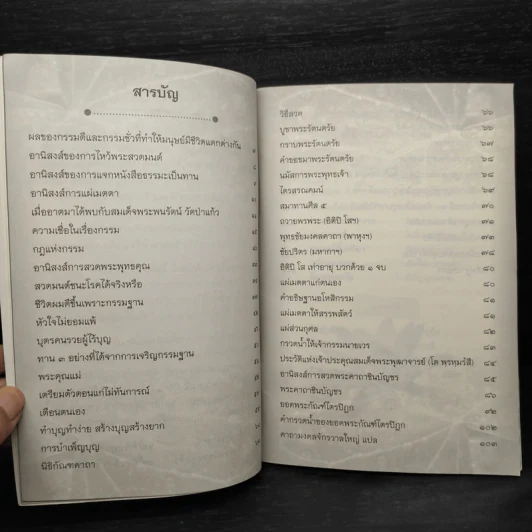 สารบัญ
ผลของกรรมดีและกรรมชั่วที่ทำให้มนุษย์มีชีวิตแตกต่างกัน
อานิสงส์ของการไหว้พระสวดมนต์
อานิสงส์ของการแจกหนังสือธรรมะเป็นทาน
อานิสงส์การแผ่เมตตา
เมื่ออาตมาได้พบกับสมเด็จพระพนรัตน์ วัดป่าแก้ว
ความเชื่อในเรื่องกรรม
กฎแห่งกรรม
อานิสงส์การสวดพระพุทธคุณ
สวดมนต์ชนะโรคได้จริงหรือ
ชีวิตผมดีขึ้นเพราะกรรมฐาน
หัวใจไม่ยอมแพ้
บุตรคนรวยผู้ไร้บุญ
ทาน ๓ อย่างที่ได้จากการเจริญกรรมฐาน
พระคุณแม่
เตรียมตัวตอนแก่ไม่ทันการณ์
เตือนตนเอง
ทำบุญทำง่าย สร้างบุญสร้างยาก
การบำเพ็ญบุญ
นิธิกัณฑคาถา
วิธีสวด ๖๖
บูชาพระรัตนตรัย ๖๖
กราบพระรัตนตรัย ๖๗
คำขอขมาพระรัตนตรัย ๖๘
นมัสการพระพุทธเจ้า ๖๘
ไตรสรณคมน์ ๖๙
สมาทานศีล ๕
ถวายพรพระ (อิติปิ โสฯ) ๗๑
พุทธชัยมงคลคาถา (พาหุงฯ) ๗๒
ชัยปริตร (มหากาฯ) ๗๔
อิติปิ โส เท่าอายุ บวกด้วย ๑ จบ ๘๐
แผ่เมตตาแก่ตนเอง
คำอธิษฐานอโหสิกรรม ๘๑
แผ่เมตตาให้สรรพสัตว์ ๘๑
แผ่ส่วนกุศล ๘๒
กรวดน้ำให้เจ้ากรรมนายเวร
ประวัติแห่งเจ้าประคุณสมเด็จพระพุฒาจารย์ (โต พรหมรังสี) ๘๔
อานิสงส์การสวดพระคาถาชินบัญชร ๘๕
พระคาถาชินบัญชร ๘๖
ยอดพระกัณฑ์ไตรปิฎก ๙๒
คำกรวดน้ำของยอดพระกัณฑ์ไตรปิฎก ๑๐๒
คาถามงคลจักรวาลใหญ่ แปล ๑๐๓